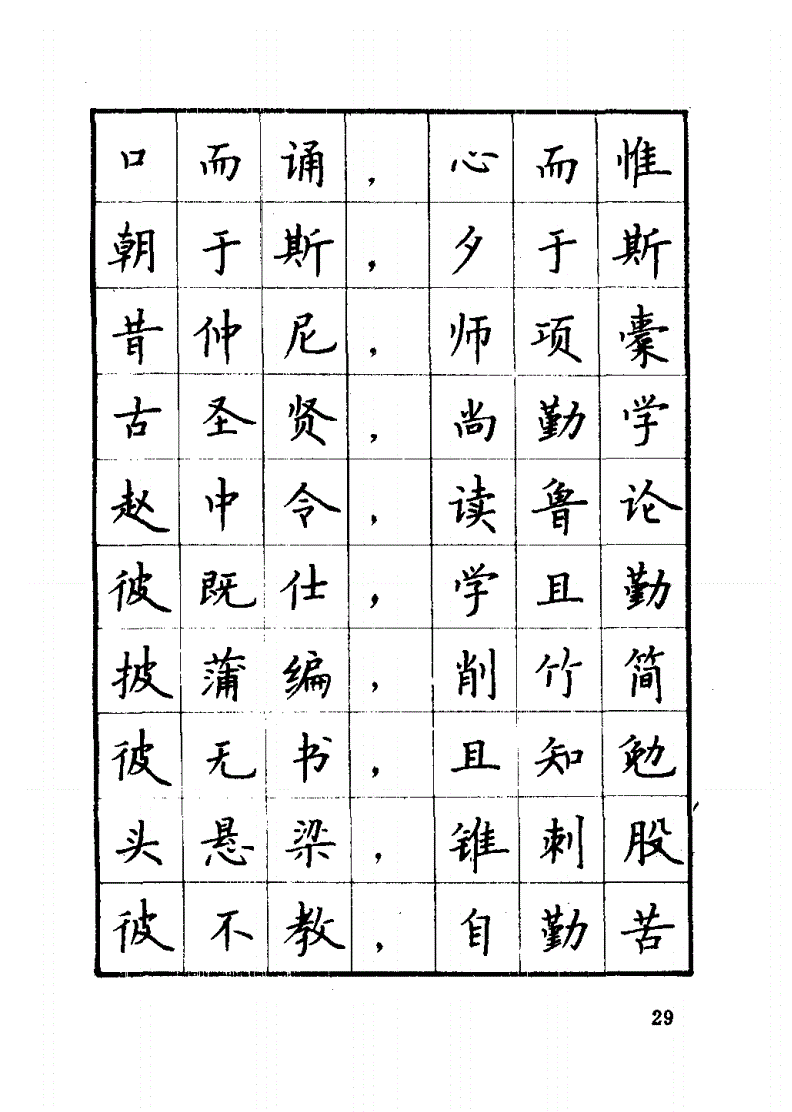 口而诵，心而惟
朝于斯，夕于斯
昔仲尼，师项橐
古圣贤，尚勤学
赵中令，读鲁论
彼既仕，学且勤
披蒲编，削竹简
彼无书，且知勉
头悬梁，锥刺股
彼不教，自勤苦
29